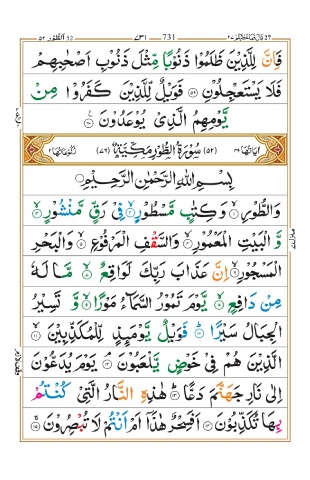 ٥٢ اَلطُّوْر ٥٢ ٧٣١ 731
فَاِنَّ لِلَّذِيْنَ ظَلَمُوْا ذَنُوْبًا مِّثْلَ ذَنُوْبِ اَصْحٰبِهِمْ
فَلَا يَسْتَعْجِلُوْنِ ۝ فَوَيْلٌ لِّلَّذِيْنَ كَفَرُوْا مِنْ
يَّوْمِهِمُ الَّذِيْ يُوْعَدُوْنَ ۝
اٰيَاتُهَا ٤٩ (٥٢) سُوْرَةُ الطُّوْرِ مَكِّيَّةٌ (٧٦) رُكُوْعَاتُهَا ٢
بِسْمِ اللّٰهِ الرَّحْمٰنِ الرَّحِيْمِ
وَالطُّوْرِ ۝ وَكِتٰبٍ مَّسْطُوْرٍ ۝ فِيْ رَقٍّ مَّنْشُوْرٍ ۝
وَّ الْبَيْتِ الْمَعْمُوْرِ ۝ وَالسَّقْفِ الْمَرْفُوْعِ ۝ وَالْبَحْرِ
الْمَسْجُوْرِ ۝ اِنَّ عَذَابَ رَبِّكَ لَوَاقِعٌ ۝ مَّا لَهٗ
مِنْ دَافِعٍ ۝ يَّوْمَ تَمُوْرُ السَّمَآءُ مَوْرًا ۝ وَّ تَسِيْرُ
الْجِبَالُ سَيْرًا ۝ فَوَيْلٌ يَّوْمَئِذٍ لِّلْمُكَذِّبِيْنَ ۝
الَّذِيْنَ هُمْ فِيْ خَوْضٍ يَّلْعَبُوْنَ ۝ يَوْمَ يُدَعُّوْنَ
اِلٰى نَارِ جَهَنَّمَ دَعًّا ۝ هٰذِهِ النَّارُ الَّتِيْ كُنْتُمْ
بِهَا تُكَذِّبُوْنَ ۝ اَفَسِحْرٌ هٰذَآ اَمْ اَنْتُمْ لَا تُبْصِرُوْنَ ۝